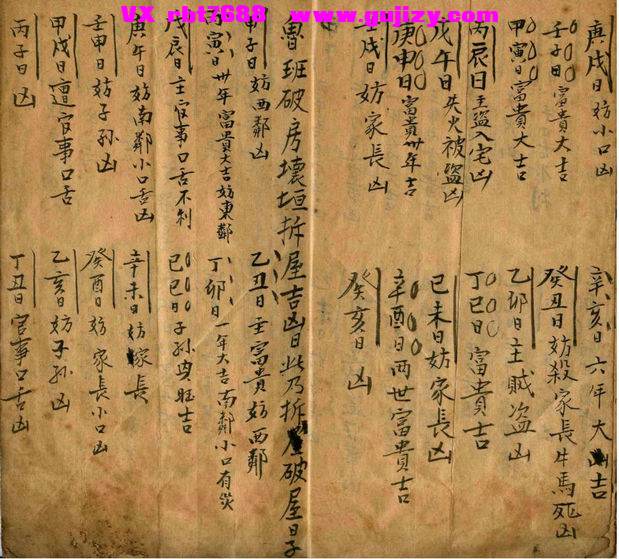 VX_rbt7688 www.gujizy.com
庚戌日妨小口凶
辛亥日六年大吉
壬子日富貴大吉
癸丑日妨殺家長牛馬死凶
甲寅日富貴大吉
乙卯日主賊盗凶
丙辰日主盗入宅凶
丁巳日富貴吉
戊午日失火被盗凶
己未日妨家長凶
庚申日富貴卅年吉
辛酉日两世富貴吉
壬戌日妨家長凶
癸亥日凶
魯班破房壞垣拆屋吉凶日此乃拆屋破屋日子
甲子日妨西鄰凶
乙丑日主富貴妨西鄰
丙寅日卅年富貴大吉妨東鄰
丁卯日一年大吉南鄰小口有災
戊辰日主官事口舌不利
己巳日子孫興旺吉
庚午日妨南鄰小口舌凶
辛未日妨家長
壬申日妨子孫凶
癸酉日妨家長小口凶
甲戌日遭官事口舌
乙亥日妨子孫凶
丙子日凶
丁丑日官事口舌凶